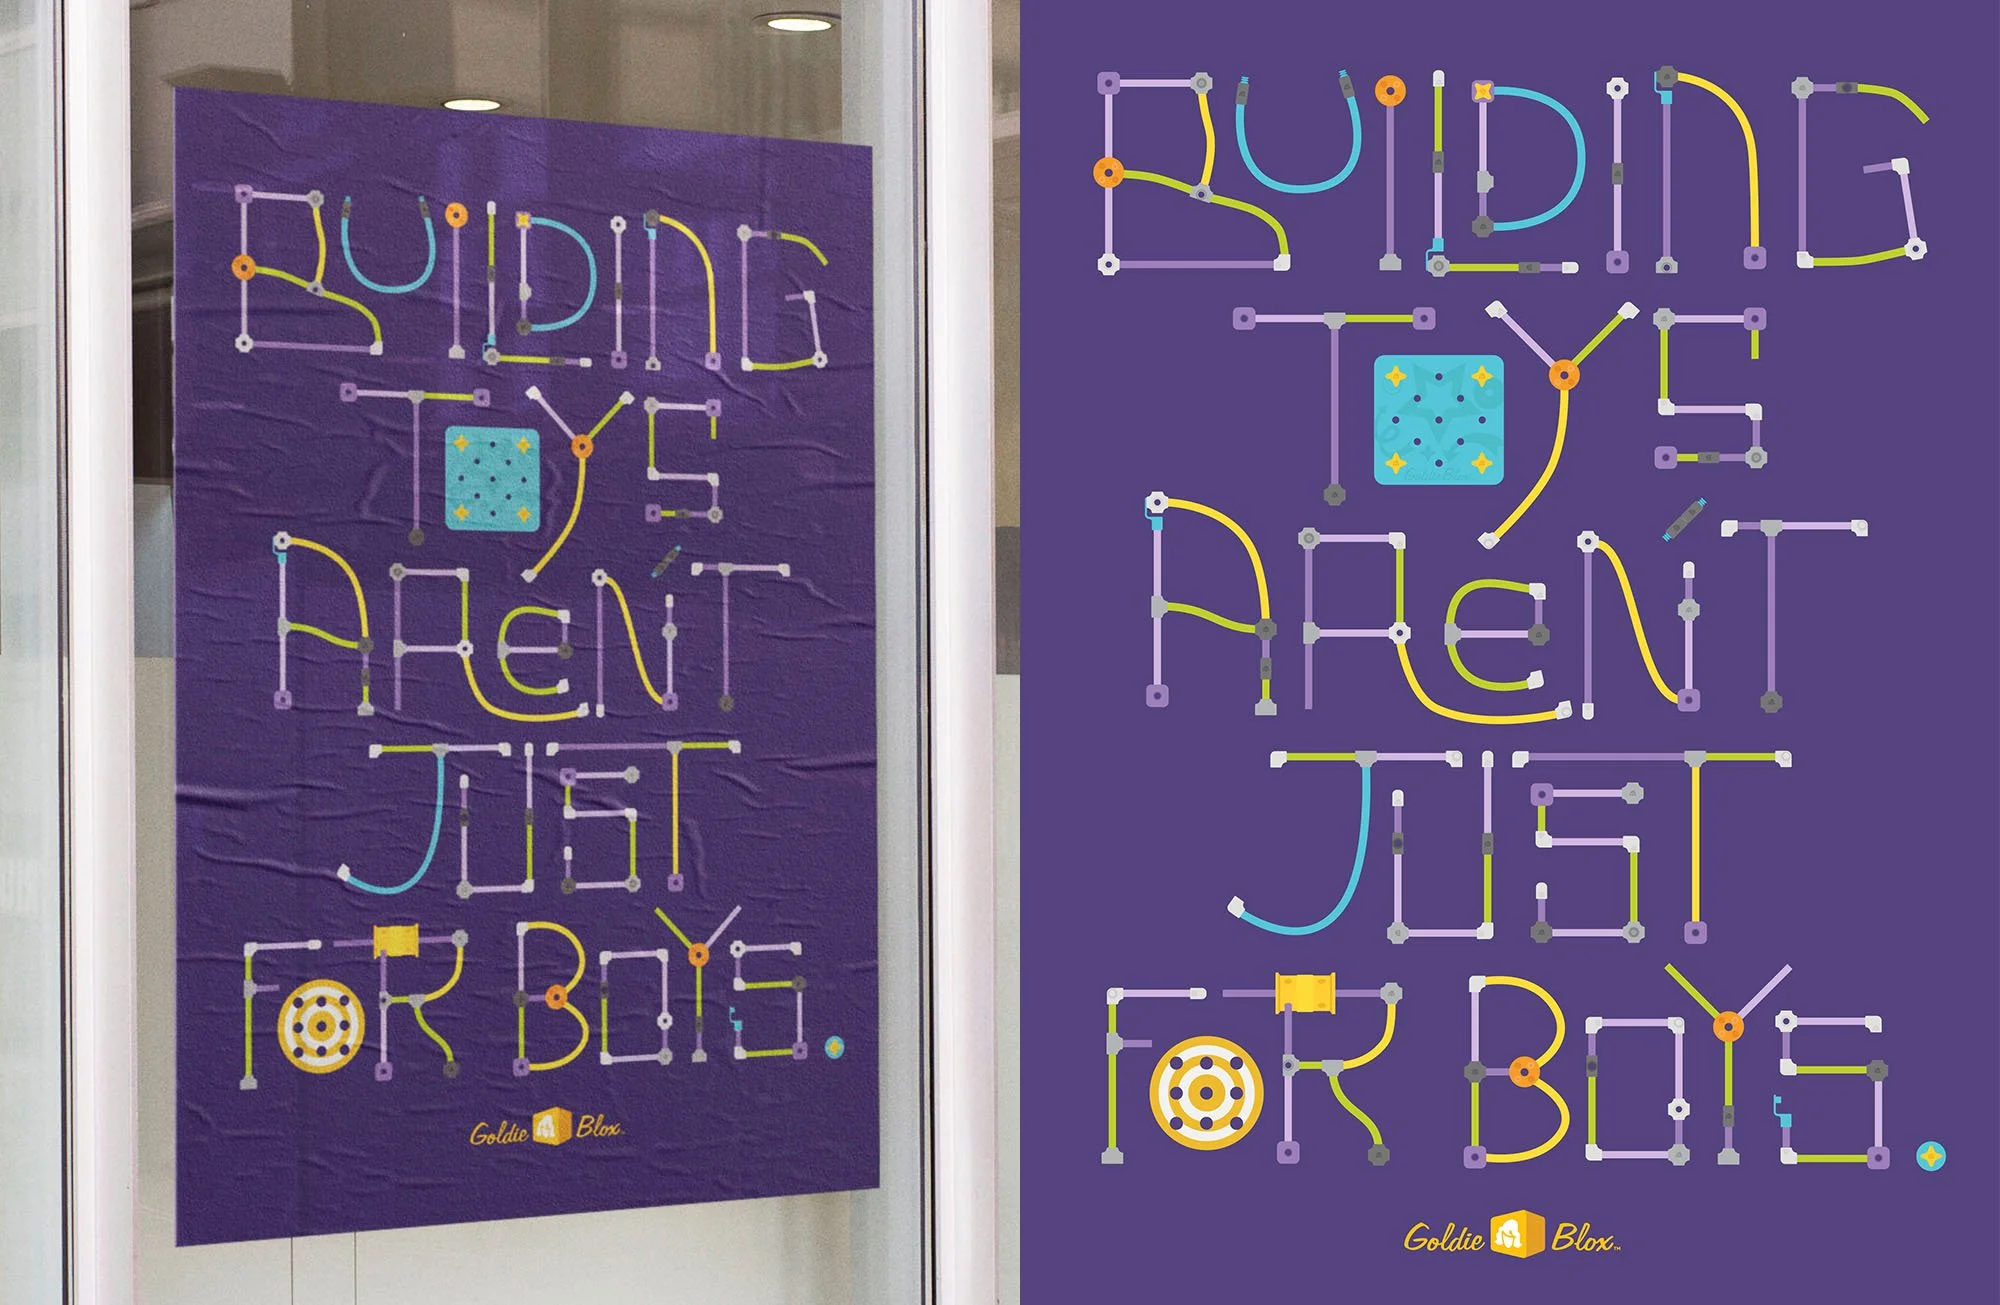 BUILDING
TOYS
AREN'T
JUST
FOR BOYS.
Goldie Blox™
BUILDING
TOYS
GoldieBlox
AREN'T
JUST
FOR BOYS.
Goldie Blox™